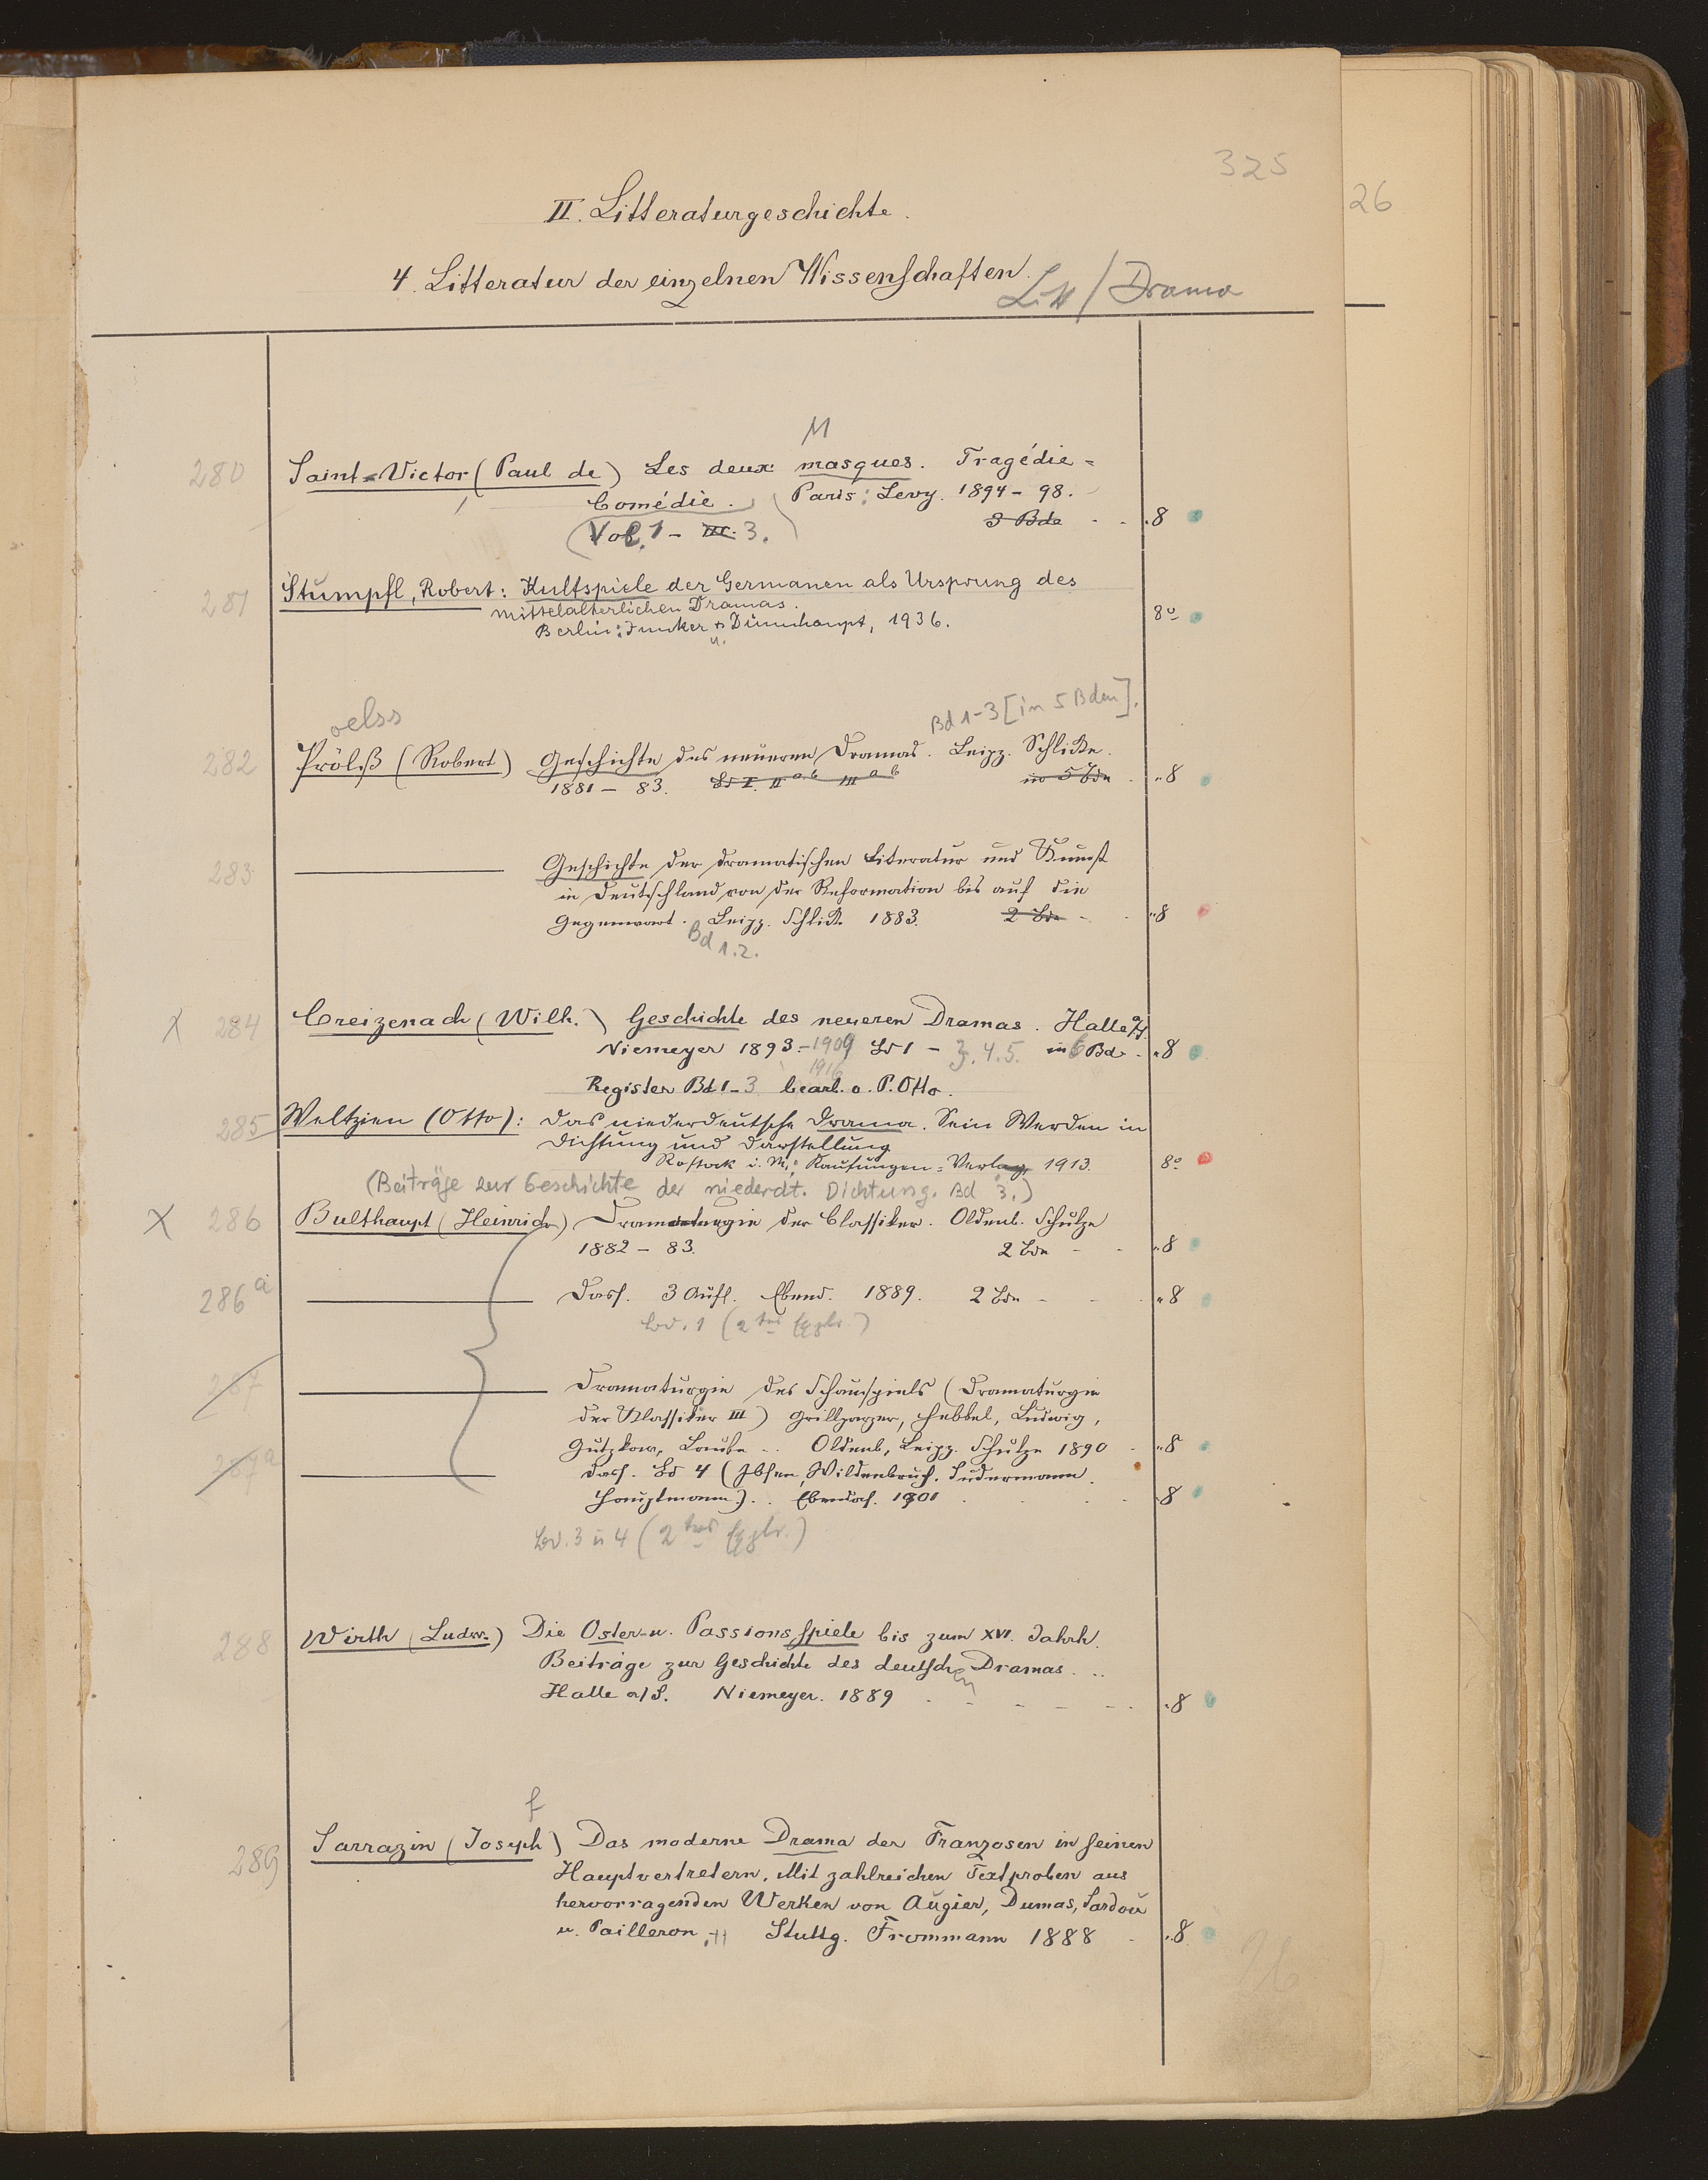 325
26
II. Litteraturgeschichte.
4. Litteratur der einzelnen Wissenschaften.
Litt / Drama
M
280 Saint-Victor (Paul de) Les deux masques. Tragédie-
Comédie. Paris: Levy. 1894-98.
(Vol. 1 - III. 3.) 3 Bde - - „8
281 Stumpfl, Robert: Kultspiele der Germanen als Ursprung des
mittelalterlichen Dramas.
Berlin: Junker & Dünnhaupt, 1936. 8°
u.
oelss Bd 1-3 [in 5 Bden].
282 Prölß (Robert) Geschichte des neueren Dramas. Leipz. Schlicke.
1881-83. Bd I. II a.b III a b in 5 Bdn - „8
283 Geschichte der dramatischen Literatur und Kunst
in Deutschland von der Reformation bis auf die
Gegenwart. Leipz. Schlick. 1883. 2 Bde - - „8
Bd 1.2.
X 284 Creizenach (Wilh.) Geschichte des neueren Dramas. Halle a/S.
Niemeyer 1893.-1909 Bd 1 - 3. 4. 5. in 6 Bd - „8
1916
Register Bd 1-3 bearb. v. P. Otto.
285 Weltzien (Otto): Das niederdeutsche Drama. Sein Werden in
Dichtung und Darstellung
Rostock i. M.: Kaufungen-Verlag, 1913. 8°
(Beiträge zur Geschichte der niederdt. Dichtung. Bd 3.)
X 286 Bulthaupt (Heinrich) Dramaturgie der Classiker. Oldenb. Schulze
1882-83. 2 Bde - - „8
286a Dass. 3 Aufl. Ebend. 1889. 2 Bde - - - „8
Bd. 1 (2tes Explr.)
287 Dramaturgie des Schauspiels (Dramaturgie
der Klassiker III) Grillparzer, Hebbel, Ludwig,
Gutzkow, Laube .. Oldenb, Leipz. Schulze 1890 - „8
287a Dass. Bd 4 (Ibsen, Wildenbruch. Sudermann.
Hauptmann). . Ebendas. 1901 . . . - „8
Bd. 3 u 4 (2tes Explr.)
288 Wirth (Ludw.) Die Oster- u. Passionsspiele bis zum XVI. Jahrh.
Beiträge zur Geschichte des deutschen Dramas. ..
Halle a/S. Niemeyer. 1889 . - - - - - . „8
f
289 Sarrazin (Joseph) Das moderne Drama der Franzosen in seinen
Hauptvertretern. Mit zahlreichen Textproben aus
hervorragenden Werken von Augier, Dumas, Sardou
u. Pailleron. Stuttg. Frommann 1888 - „8